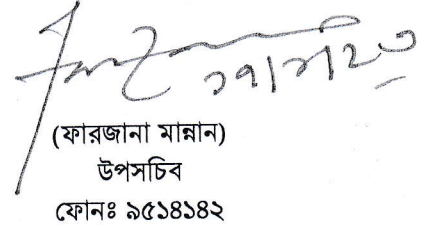 (ফারজানা মান্নান)
উপসচিব
ফোনঃ ৯৫১৪১৪২